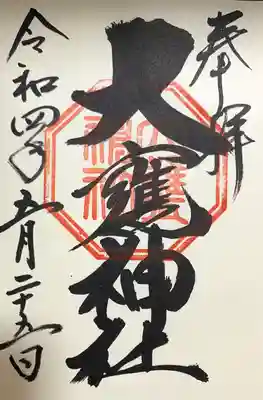 奉拝
大甕神社
令和四年五月二十五日